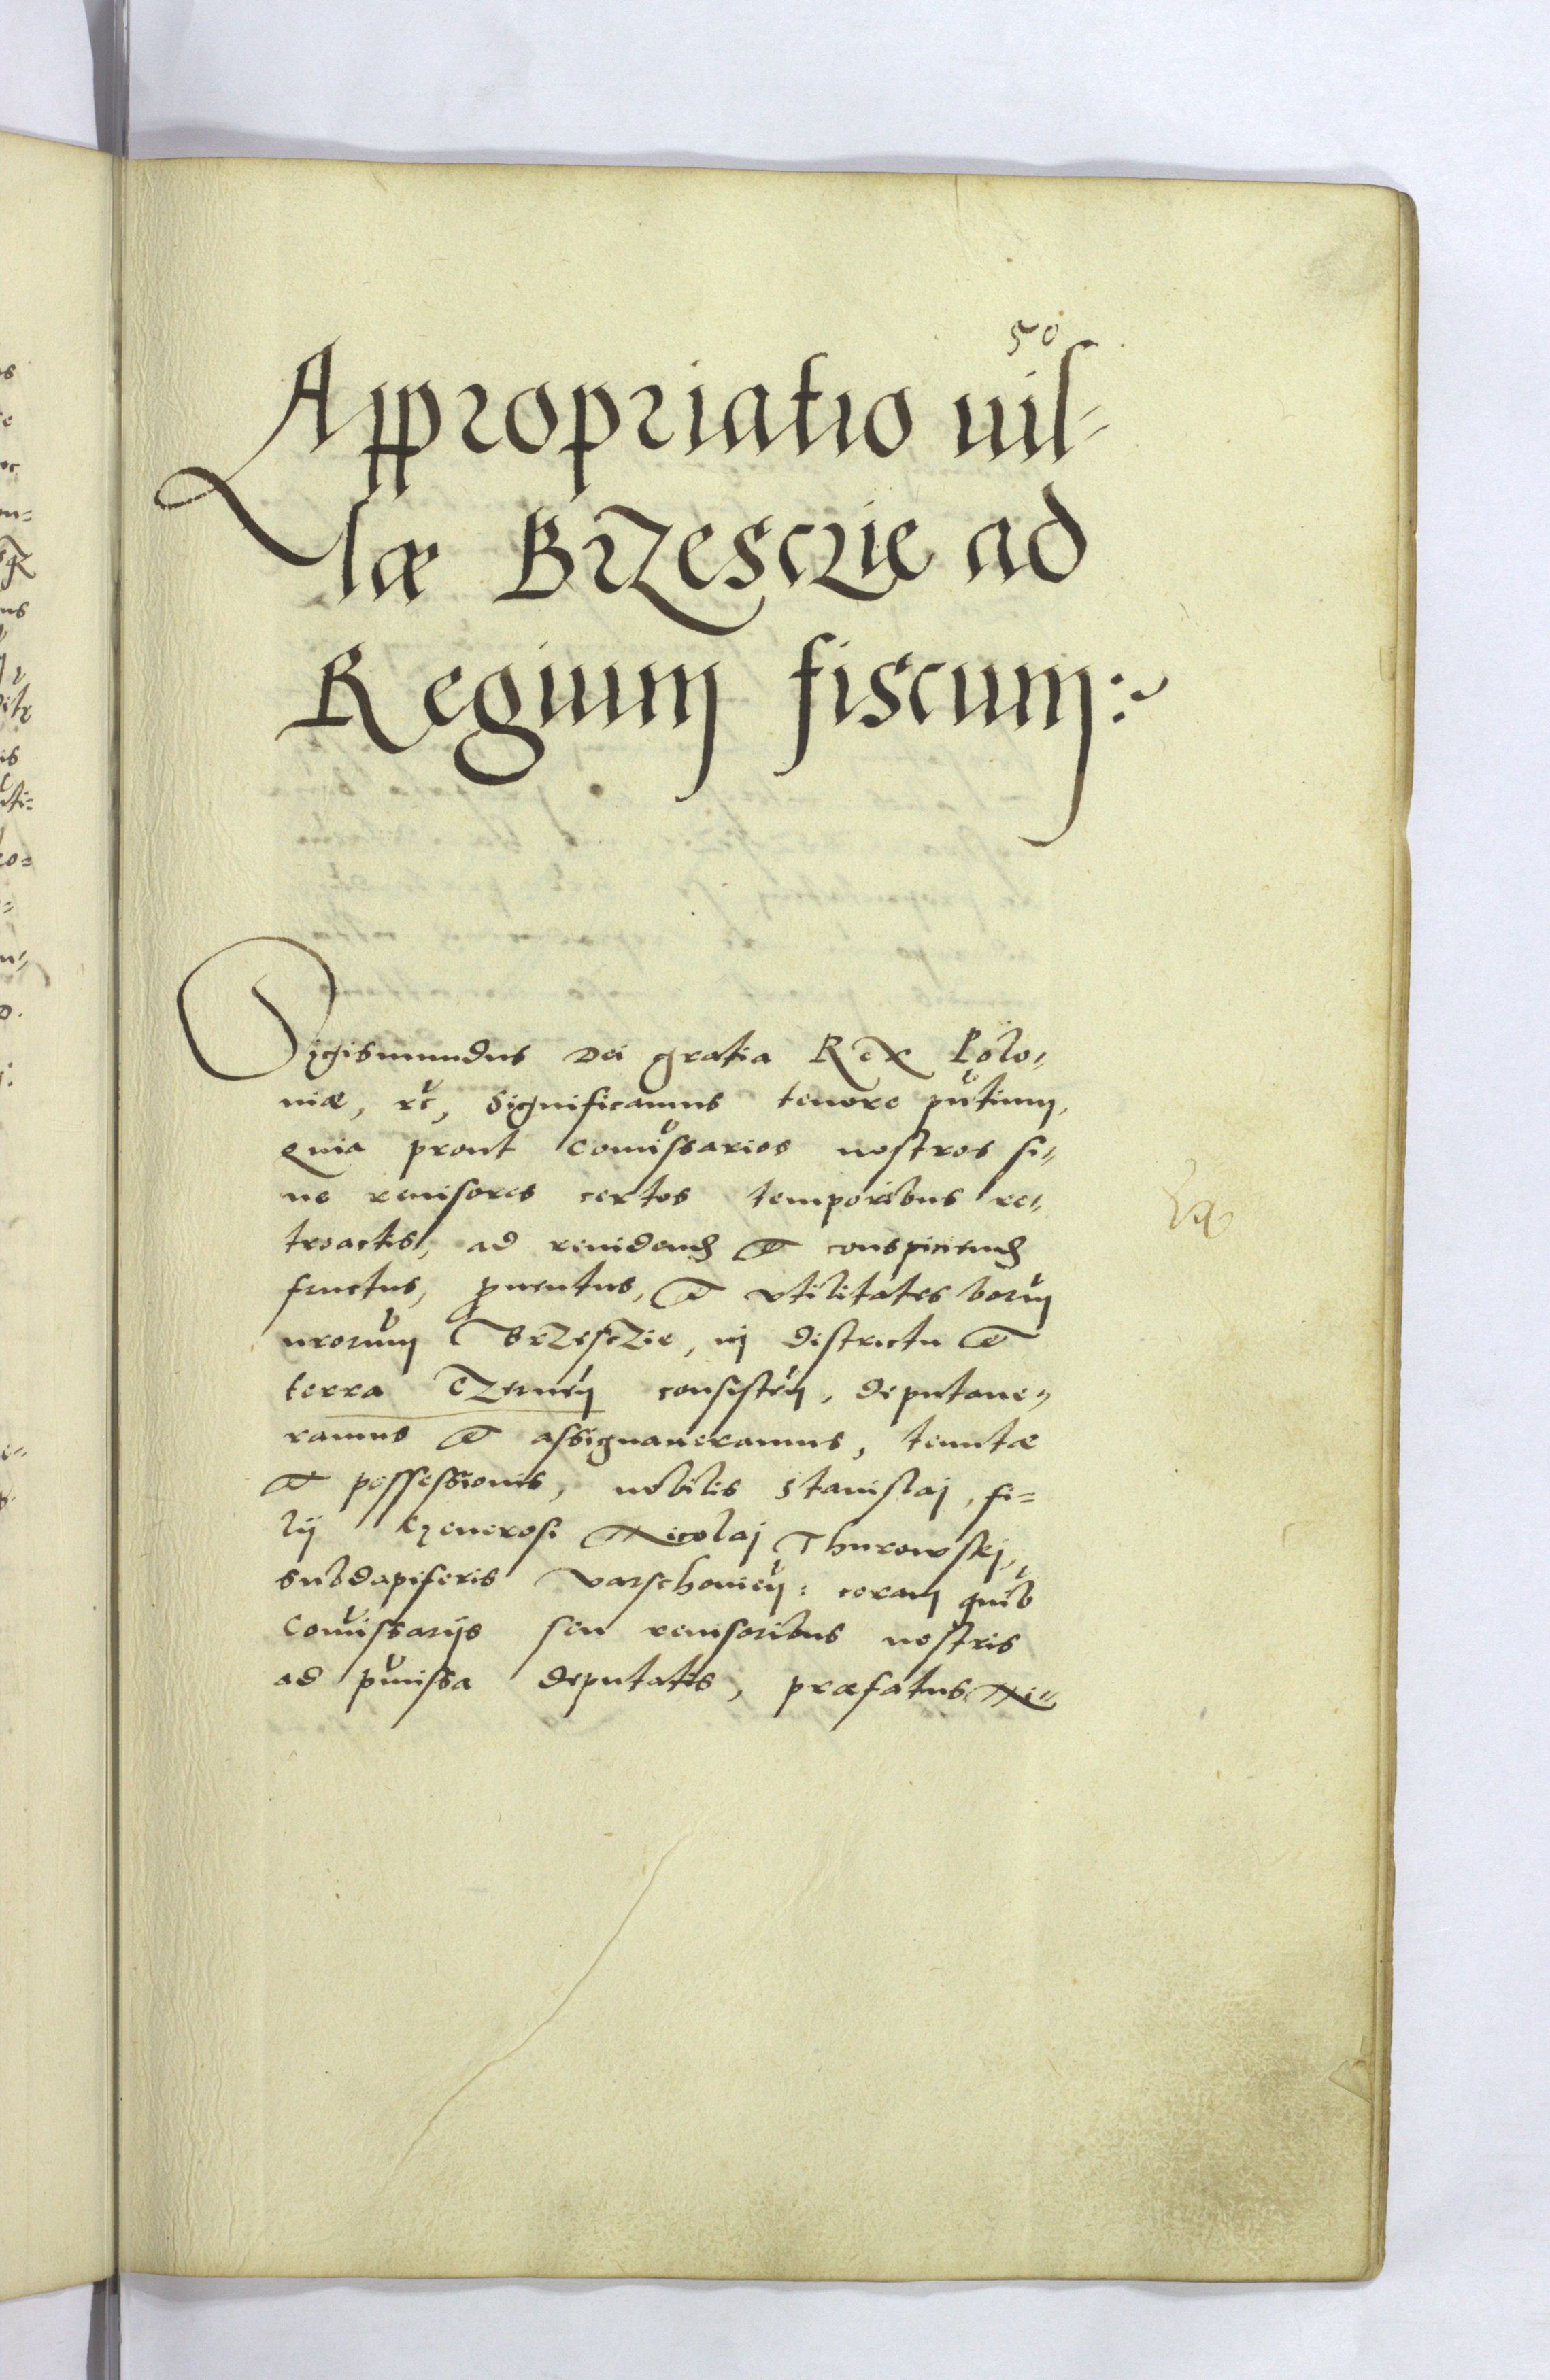 50
Appropriatio uil-
læ Brzesczie ad
Regium fiscum:~
Sigismundus Dei gratia Rex Polo-
niæ, etc, Significamus tenore pntium,
quia prout Comissarios nostros si-
ue reuisores certos temporibus re-
troactis, ad reuidend et conspiciend
fructus, prouentus, et vtilitates borum
nrorum Brzesczie, in districtu et
terra Czernen consisten, deputaue-
ramus et assignaueramus, tenutæ
et possessionis, nobilis Stanislai, fi-
lij Generosi Nicolai Thurowskj,
Subdapiferis Varschouien: coram quib
Comissarijs seu reuisoribus nostris
ad pmissa deputatis, præfatus Ni-